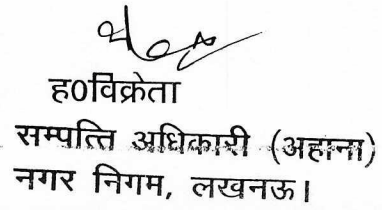 ह0विक्रेता
सम्पत्ति अधिकारी (अहाना)
नगर निगम, लखनऊ।